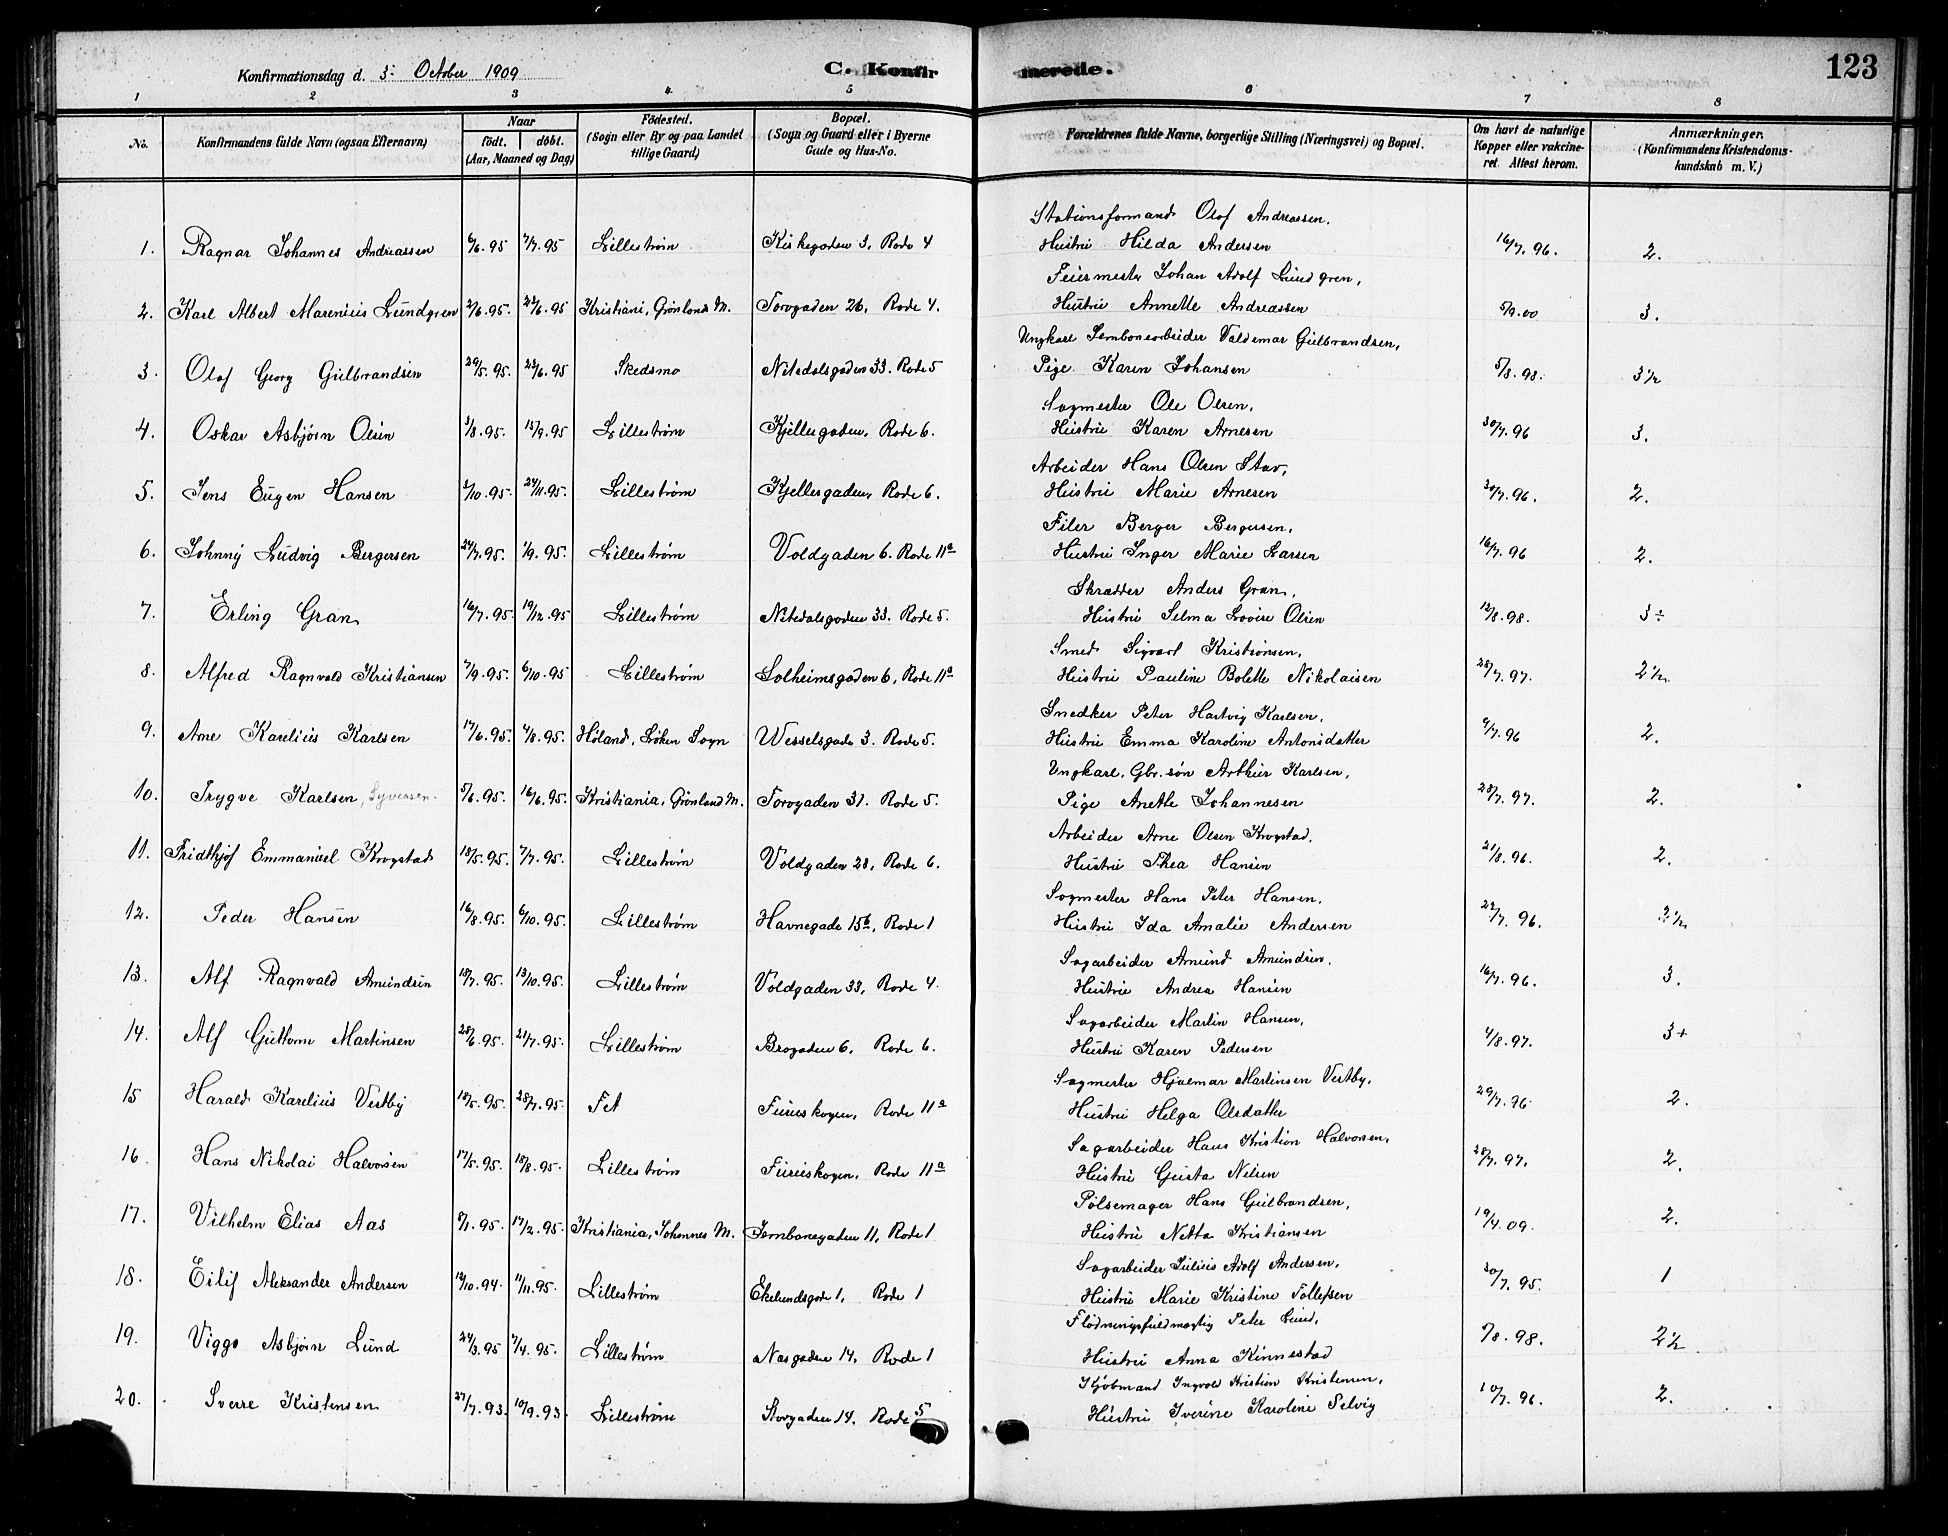 Konfirmationsdag d. 3. October 1909 C. Konfirmerede. 123
1 2 3 4. 5 6 7 8
No. Konfirmandens fulde Navn (ogsaa Efternavn) Naar födt. döbt. (Aar, Maaned og Dag) Födested. (Sogn eller By og paa Landet tillige Gaard) Bopæl. (Sogn og Gaard eller i Byerne Gade og Hus-No. Forældrenes fulde Navne, borgerlige Stilling (Næringsvei) og Bopæl. Om havt de naturlige Kopper eller vakcineret. Attest herom. Anmærkninger. (Konfirmandens Kristendomskundskab m. V.)
Stationsformand Olof Andreassen,
1. Ragnar Johannes Andreassen 6/6.95 7/7.95 Lillestrøm Kirkegaden 3, Rode 4 Hustru Hilda Andersen 16/7.96. 2.
Feiermester Johan Adolf Lundgren,
2. Karl Albert Marenius Lundgren 2/6.95. 23/6.95 Kristiani, Grönlands M. Torvgaden 26, Rode 4. Hustru Annette Andreassen 5/9.00 3.
Ungkarl Jernbanearbeider Valdemar Gulbrandsen,
3. Olaf Georg Gulbrandsen 29/5.95. 23/6.95 Skedsmo Nitedalsgaden 33. Rode 5 Pige Karen Johansen 5/8.98. 3½
Sagmester Ole Olsen,
4. Oskar Asbjørn Olsen 3/8.95. 15/9.95 Lillestrøm Kjellergaden, Rode 6. Hustru Karen Arnesen 30/7.96 3.
Arbeider Hans Olsen Stav,
5. Jens Eugen Hansen 2/10.95. 24/11.95. Lillestrøm Kjellergaden, Rode 6. Hustru Marie Arnesen 30/7.96. 2.
Filer Berger Bergersen,
6. Johnny Ludvig Bergersen 24/7.95. 1/9.95. Lillestrøm Voldgaden 6. Rode 11a Hustru Inger Marie Larsen 16/7.96 2.
Skrædder Anders Gran,
7. Erling Gran 16/7.95. 19/12.95 Lillestrøm Nitedalsgaden 33. Rode 5. Hustru Selma Lovise Olsen 12/8.98. 3÷
Smed Sigvart Kristiansen,
8. Alfred Ragnvald Kristiansen 7/9.95. 6/10.95 Lillestrøm Solheimsgaden 6, Rode 11a Hustru Pauline Bolette Nikolaisen 28/7.97. 2½
Snedker Peter Hartvig Karlsen,
9. Arne Karelius Karlsen 17/6.95. 4/8.95. Höland, Löken Sogn Wesselsgade 3. Rode 5. Hustru Emma Karoline Antonsdatter 9/7.96 2.
Ungkarl, Gbr. søn Arthur Karlsen,
10. Trygve Karlsen, Syversen. 5/6.95. 16/6.95. Kristiania, Grönland M. Torvgaden 31. Rode 5. Pige Anette Johannesen 28/7.97. 2.
Arbeider Arne Olsen Krogstad,
11. Fridthjof Emmanuel Krogstad 18/5.95. 7/7.95. Lillestrøm Voldgaden 28, Rode 6. Hustru Thea Hansen 21/8.96. 2.
Sagmester Hans Peter Hansen,
12. Peder Hansen 16/8.95. 6/10.95. Lillestrøm Havnegade 15b, Rode 1 Hustru Ida Amalie Andersen 22/7.96. 2½
Sagarbeider Amund Amundsen,
13. Alf Ragnvald Amundsen 18/7.95. 13/10.95. Lillestrøm Voldgaden 33, Rode 4. Hustru Andrea Hansen 16/7.96. 3.
Sagarbeider Martin Hansen,
14. Alf Guttorm Martinsen 28/6.95. 21/7.95. Lillestrøm Brogaden 6, Rode 6. Hustru Karen Pedersen 4/8.97. 3+
Sagmester Hjalmar Martinsen Vestby,
15 Harald Karelius Vestby 18/5.95. 28/7.95. Fet Furuskogen, Rode 11a Hustru Helga Olsdatter 29/7.96 2.
Sagarbeider Hans Kristian Halvorsen,
16. Hans Nikolai Halvorsen 17/5.95. 18/8.95. Lillestrøm Furuskogen, Rode 11a Hustru Gusta Nilsen 28/7.97. 2.
Pölsemager Hans Gulbrandsen,
17. Vilhelm Elias Aas 8/1.95. 17/2.95. Kristiania, Johannes M. Jernbanegaden 11, Rode 1 Hustru Netta Kristiansen 19/4.09. 2.
Sagarbeider Julius Adolf Andersen,
18. Eilif Aleksander Andersen 12/10.94. 11/11.95. Lillestrøm Ekelundsgade 1, Rode 1 Hustru Marie Kristine Tollefsen 30/7.95. 1
Flödningsfuldmægtig Peter Lund,
19. Viggo Asbjørn Lund 24/3.95 7/4.95. Lillestrøm Næsgaden 14, Rode 1 Hustru Anna Kinnestad 5/8.98. 2½
Kjöbmand Ingvald Kristian Kristensen,
20. Sverre Kristensen 27/7.93. 10/9.93. Lillestrøm Storgaden 14. Rode 5 Hustru Iverine Karoline Selvig 10/7.96. 2.